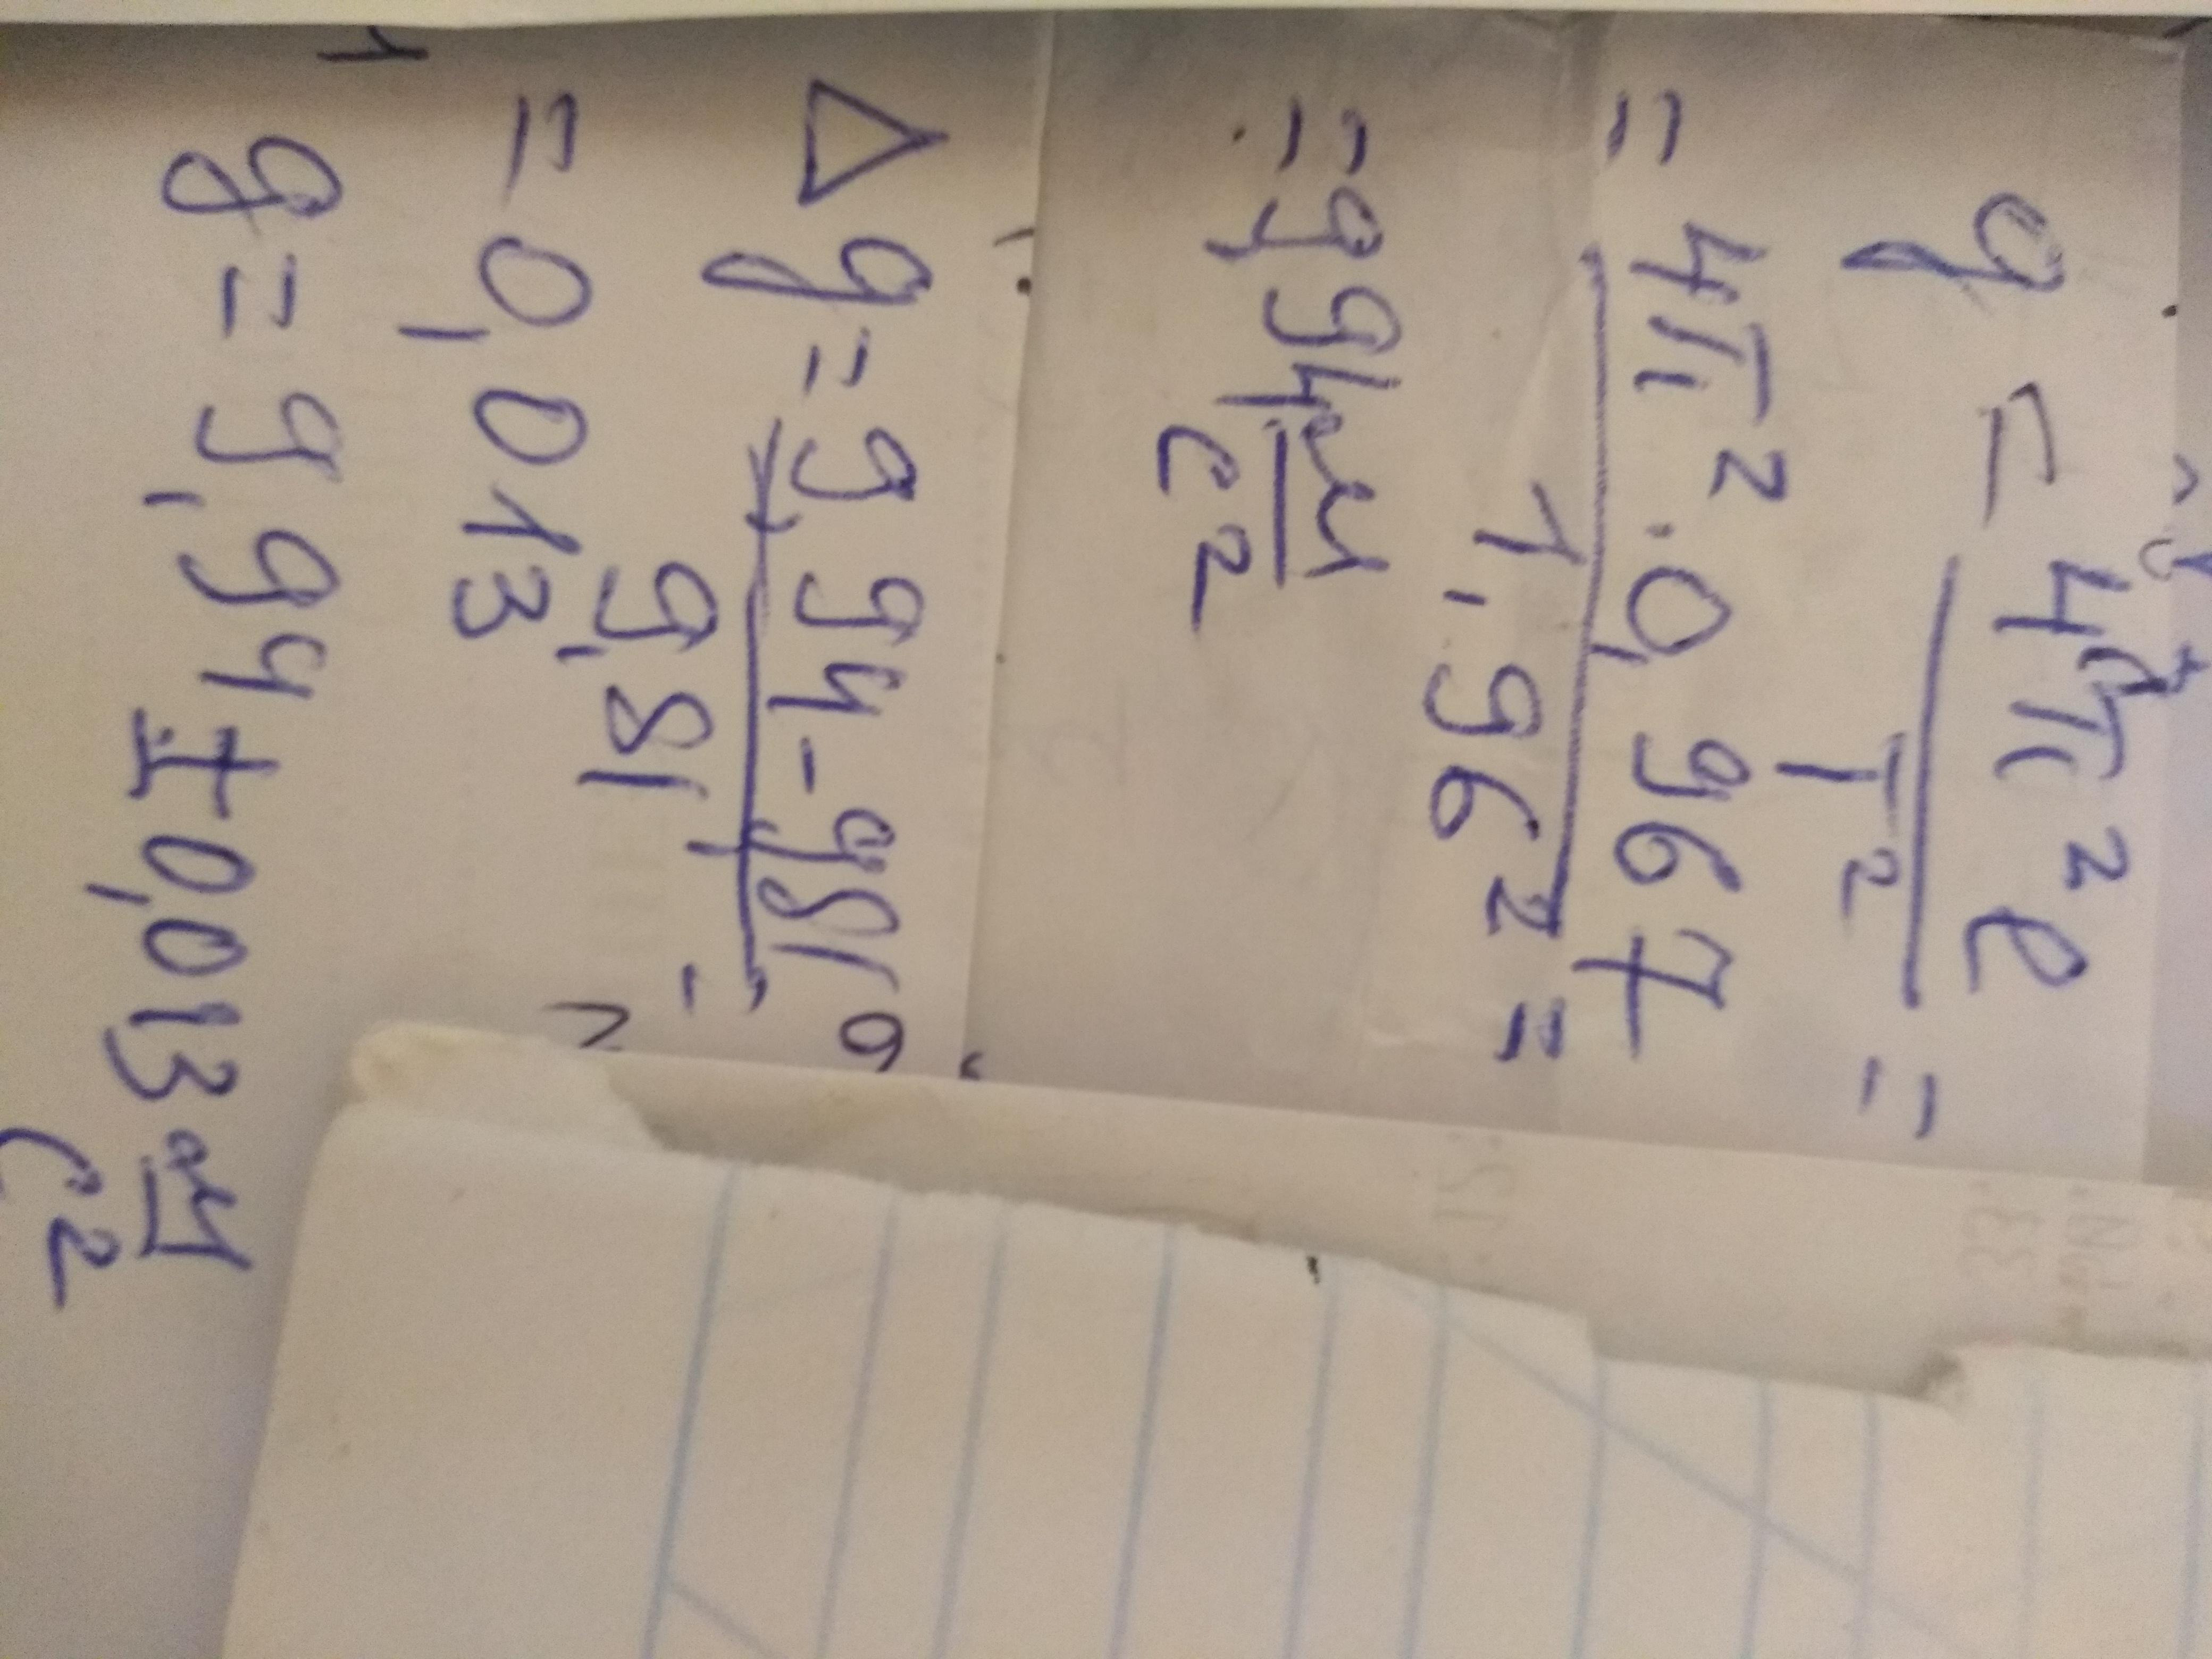 g = 4π²ℓ / T² =
= 4π² · 0,967 / 1,96² =
= 9,94 м/с²
Δg = 9,94 - 9,81 / 9,81 =
= 0,013
g = 9,94 ± 0,013 м/с²